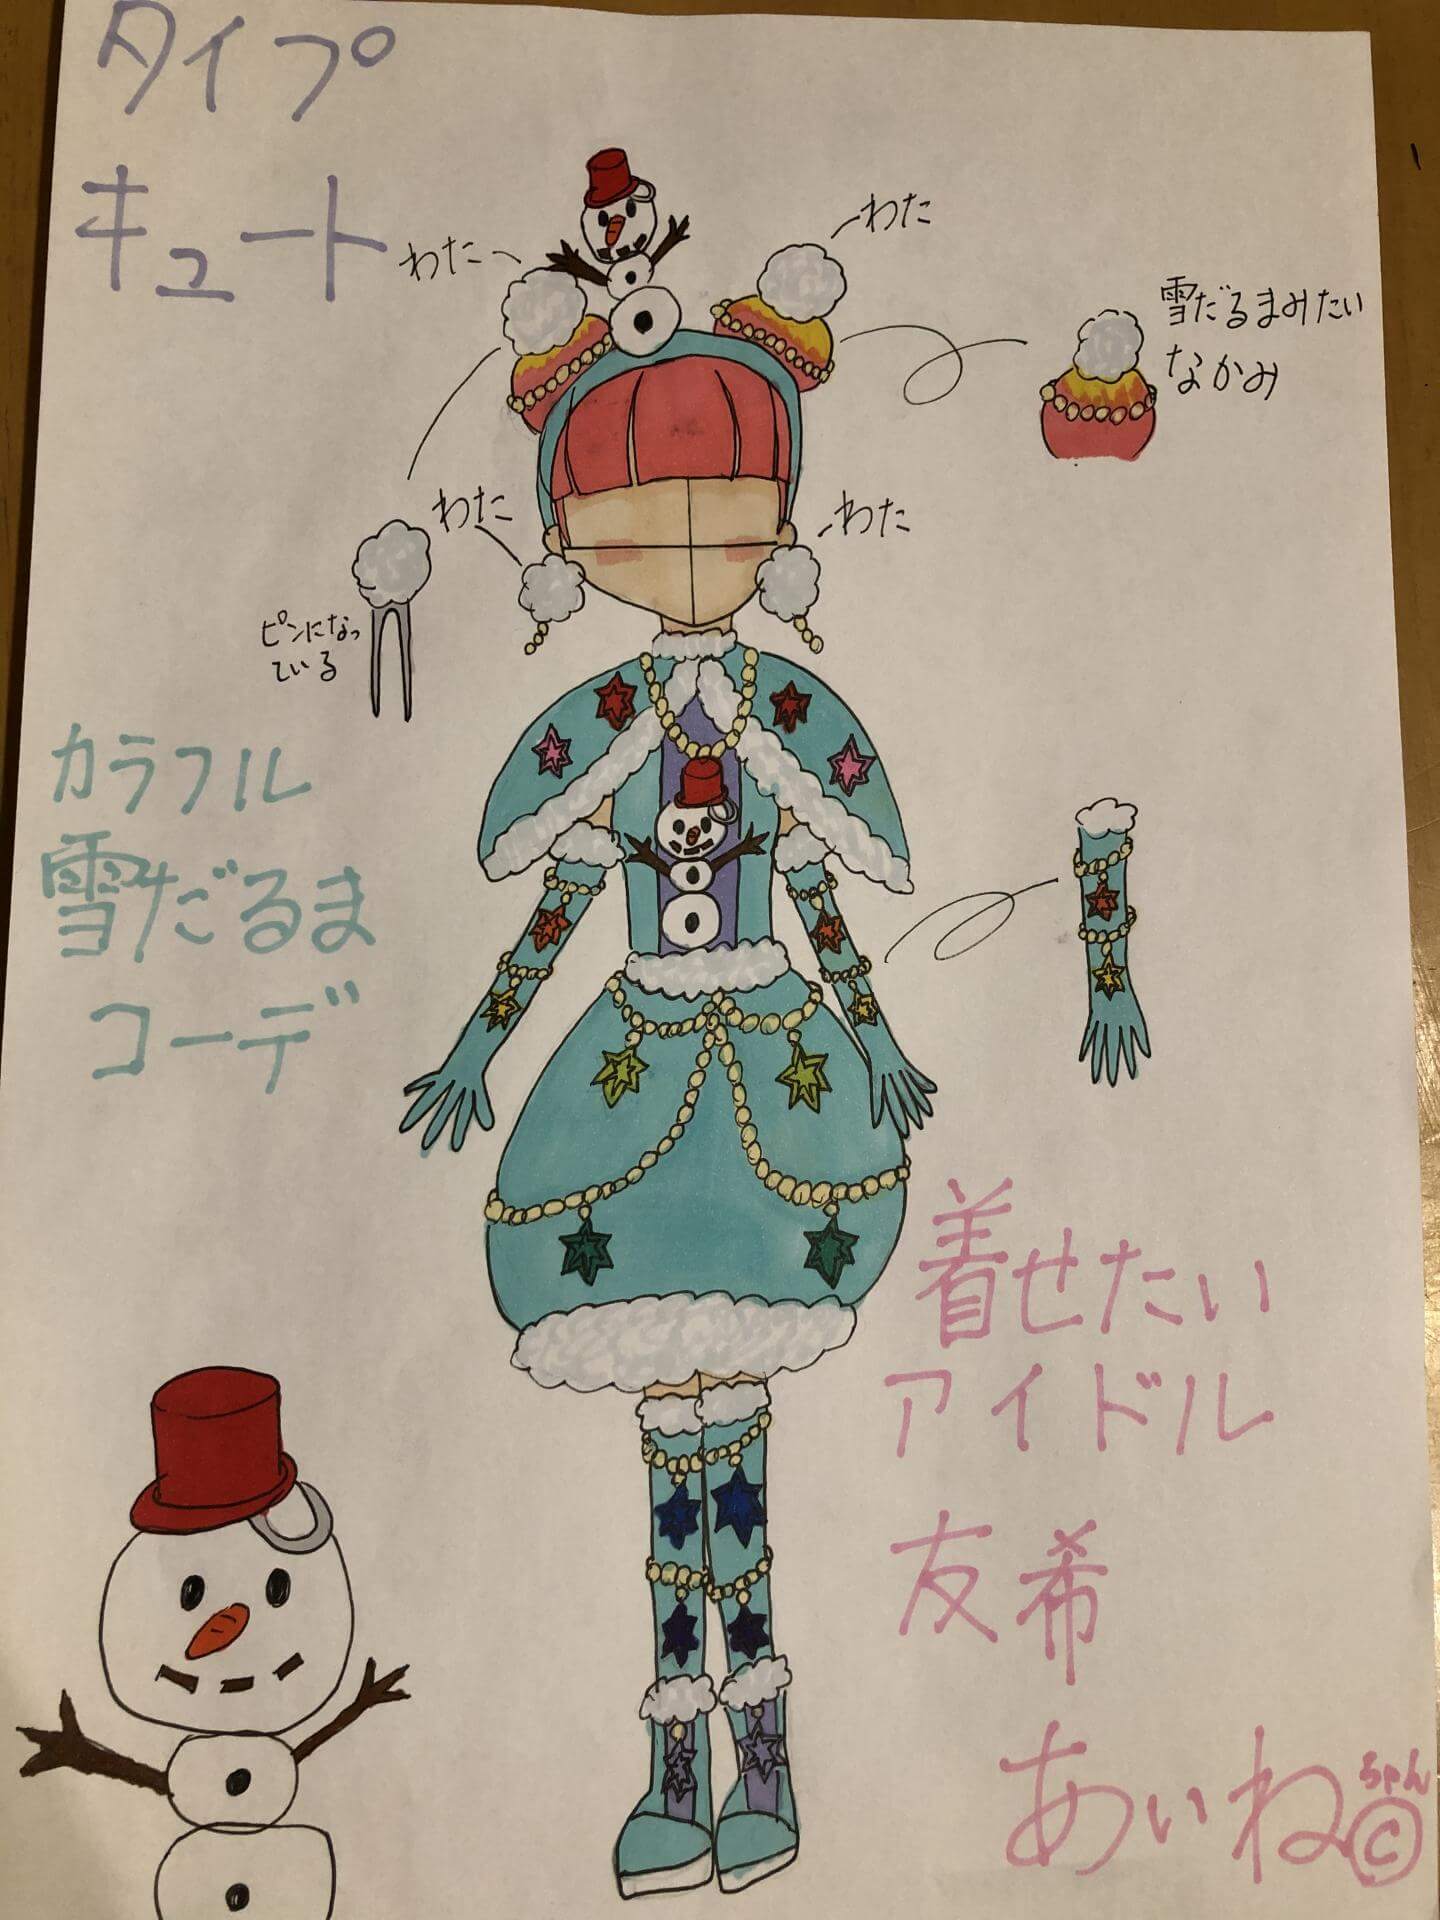 タイプ
キュート
わた
わた
雪だるまみたい
なかみ
わた
わた
ピンになっ
ている
カラフル
雪だるま
コーデ
着せたい
アイドル
友希
あいね
ちゃん
©